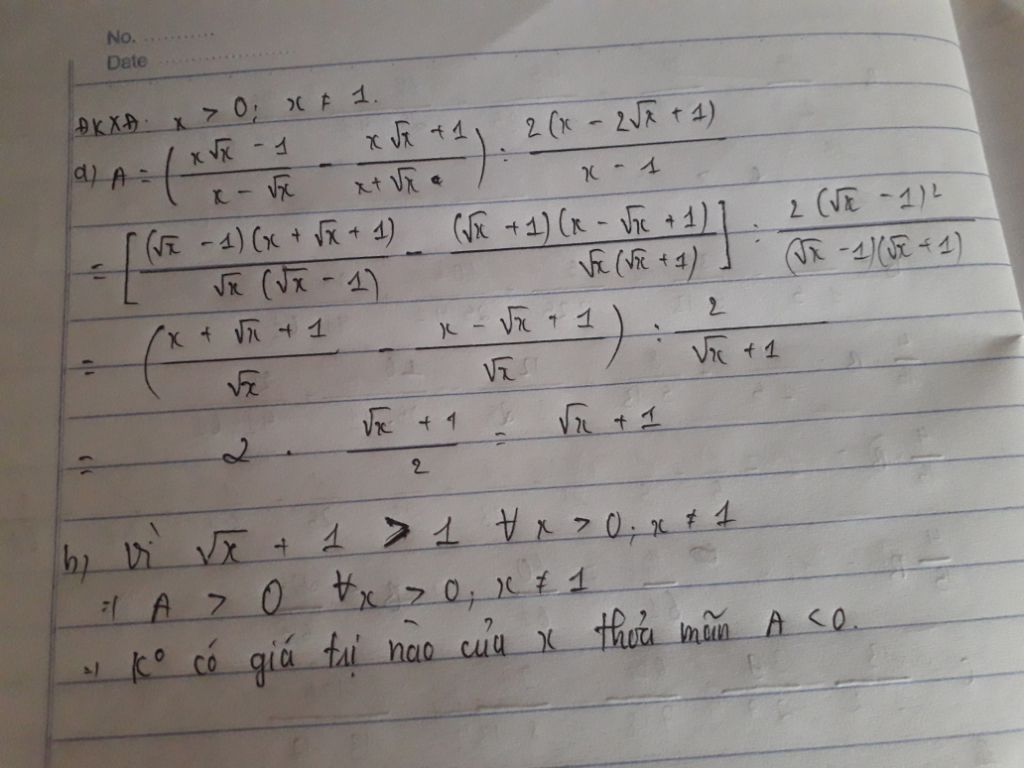 No. ............
Date ......................
ĐKXĐ: x > 0; x ≠ 1.
a) A = ( (x√x - 1)/(x - √x) - (x√x + 1)/(x + √x) ) : 2(x - 2√x + 1)/(x - 1)
= [ (√x - 1)(x + √x + 1)/(√x (√x - 1)) - (√x + 1)(x - √x + 1)/(√x (√x + 1)) ] : 2(√x - 1)²/((√x - 1)(√x + 1))
= ( (x + √x + 1)/√x - (x - √x + 1)/√x ) : 2/(√x + 1)
= 2 . (√x + 1)/2 = √x + 1
b) Vì √x + 1 > 1 ∀ x > 0; x ≠ 1
=) A > 0 ∀x > 0; x ≠ 1
=) K° có giá trị nào của x thoả mãn A < 0.